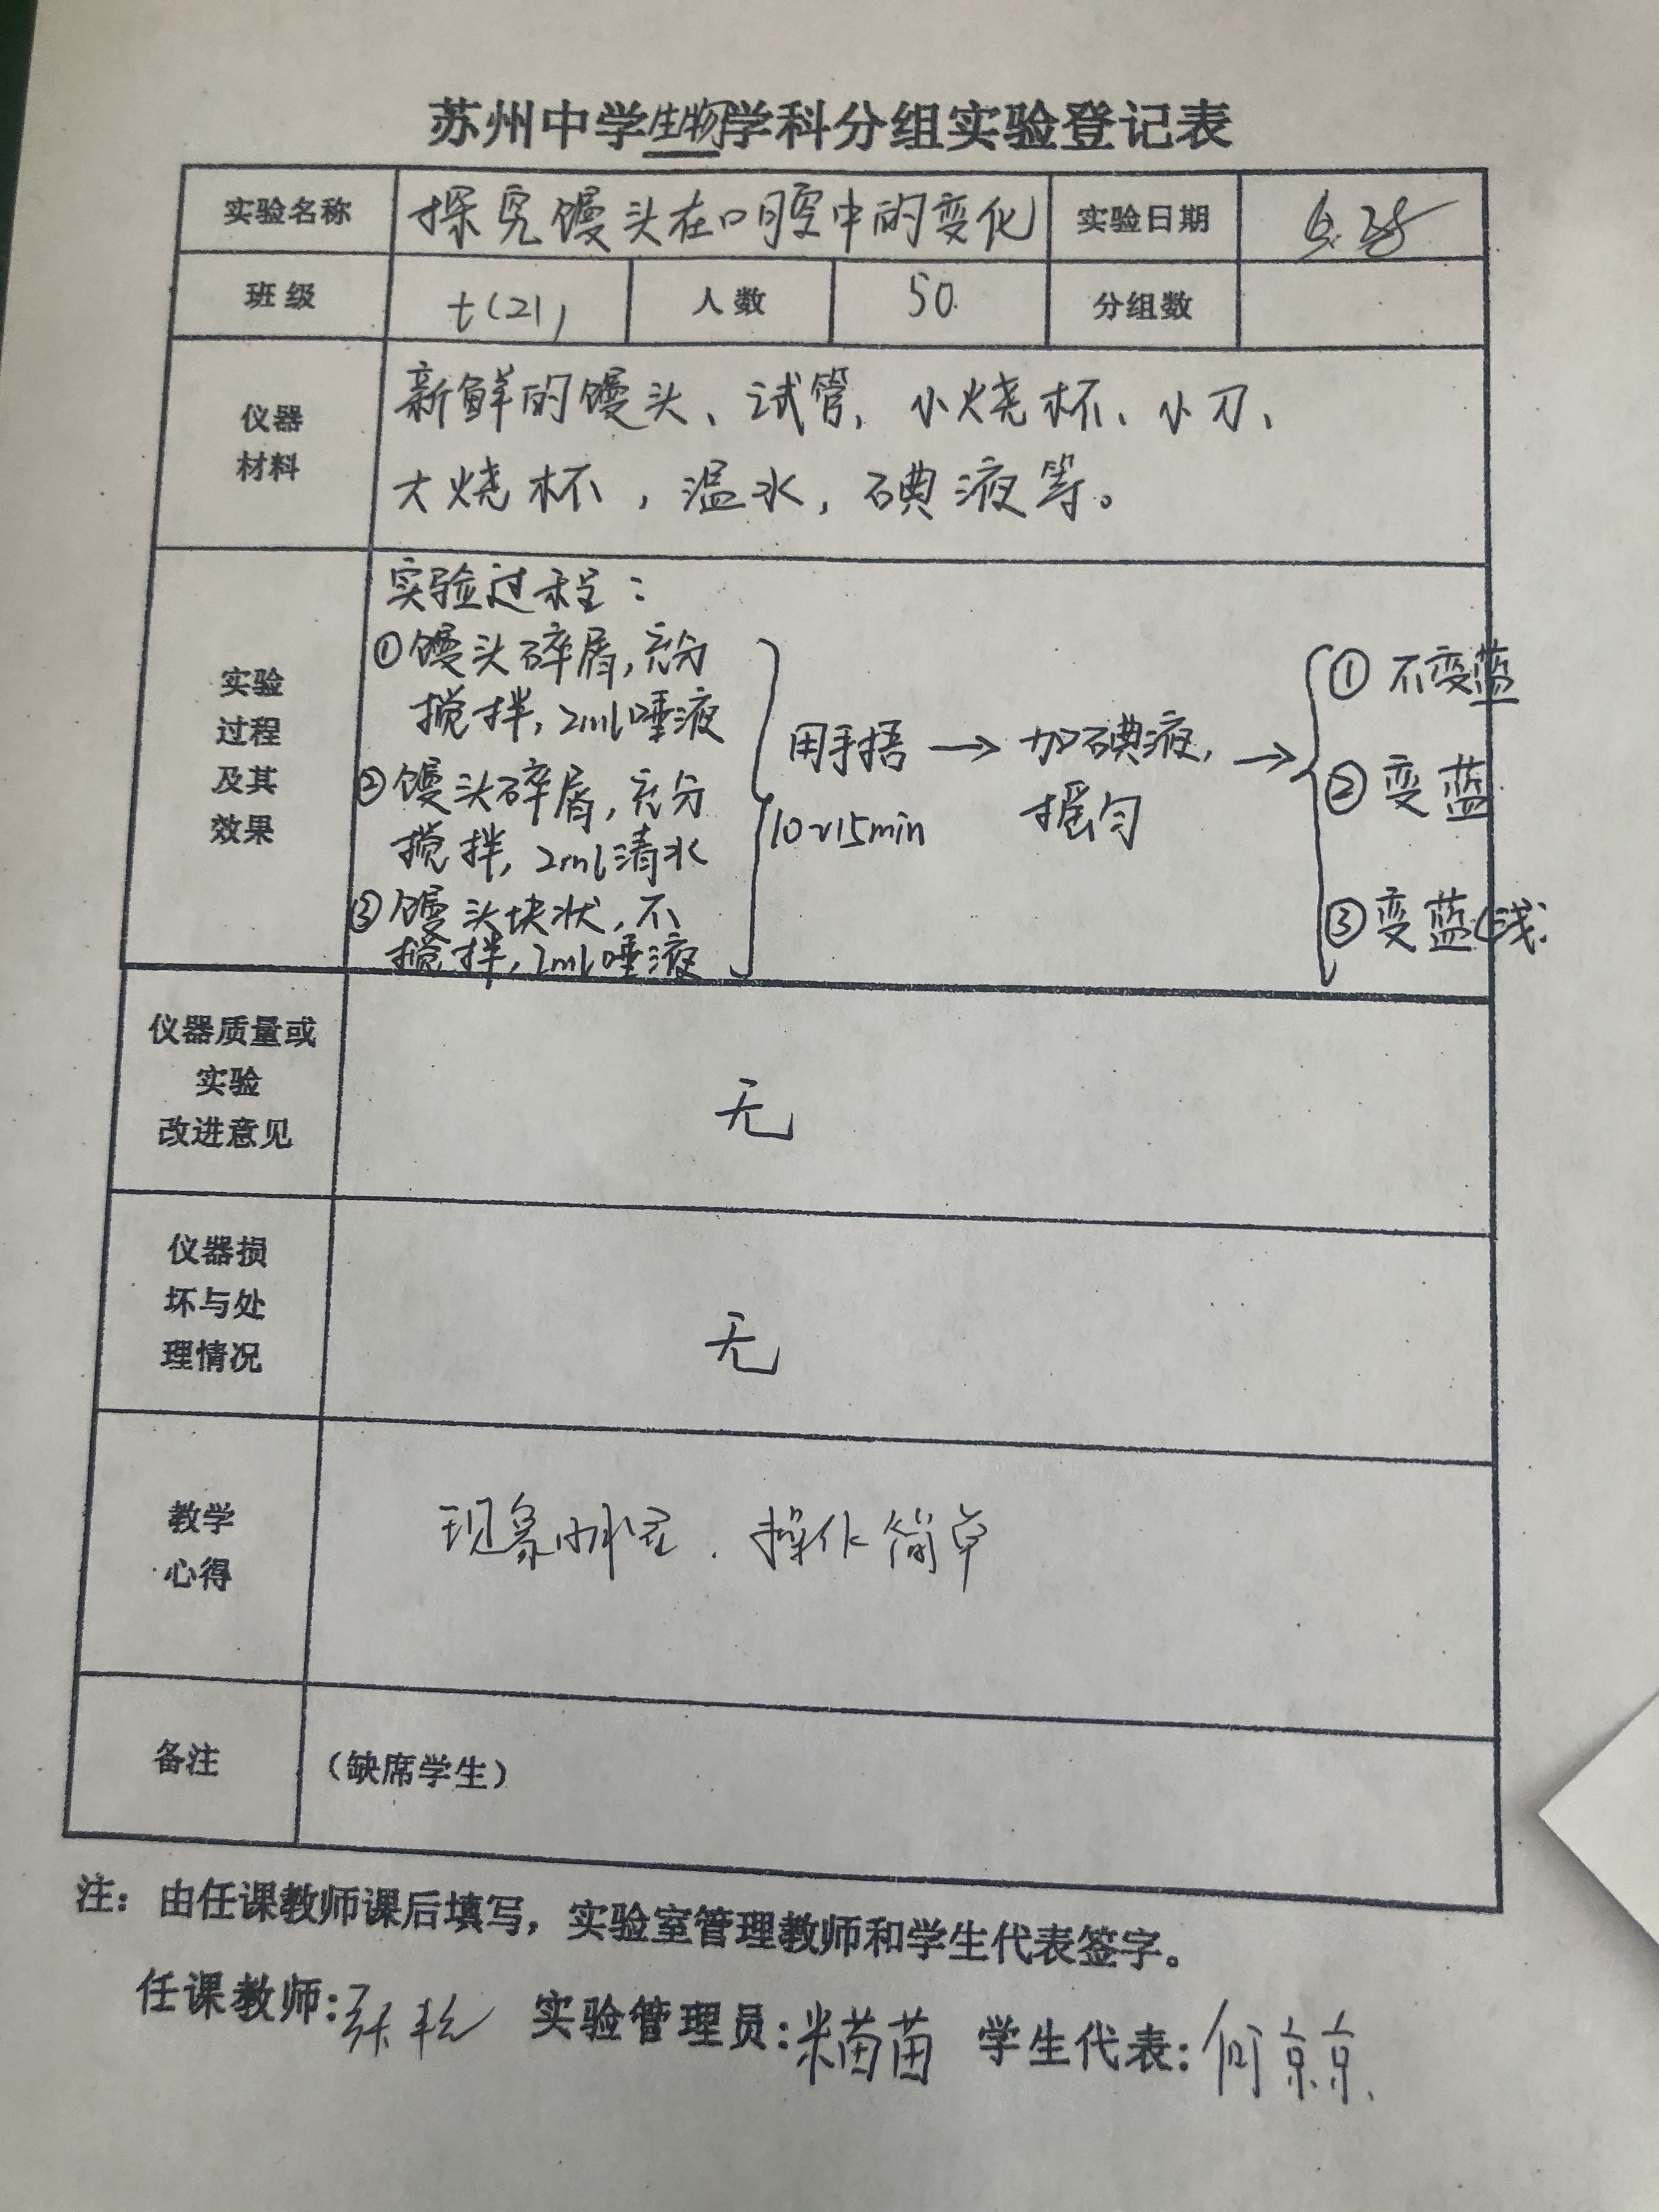 苏州中学生物学科分组实验登记表
实验名称 探究馒头在口腔中的变化 实验日期
班级 七(21) 人数 50 分组数
仪器
材料
新鲜的馒头、试管, 小烧杯、小刀、
大烧杯, 温水, 碘液等。
实验
过程
及其
效果
实验过程:
①馒头碎屑,充分
搅拌, 2ml唾液
②馒头碎屑, 充分
搅拌, 2ml清水
③馒头块状, 不
搅拌, 2ml唾液
用手捂
10~15min
→ 加碘液,
摇匀
→
① 不变蓝
② 变蓝
③ 变蓝(浅)
仪器质量或
实验
改进意见
无
仪器损
坏与处
理情况
无
教学
心得
现象明显. 操作简单
备注 (缺席学生)
注: 由任课教师课后填写, 实验室管理教师和学生代表签字。
任课教师: 实验管理员:米苗苗 学生代表:何京京